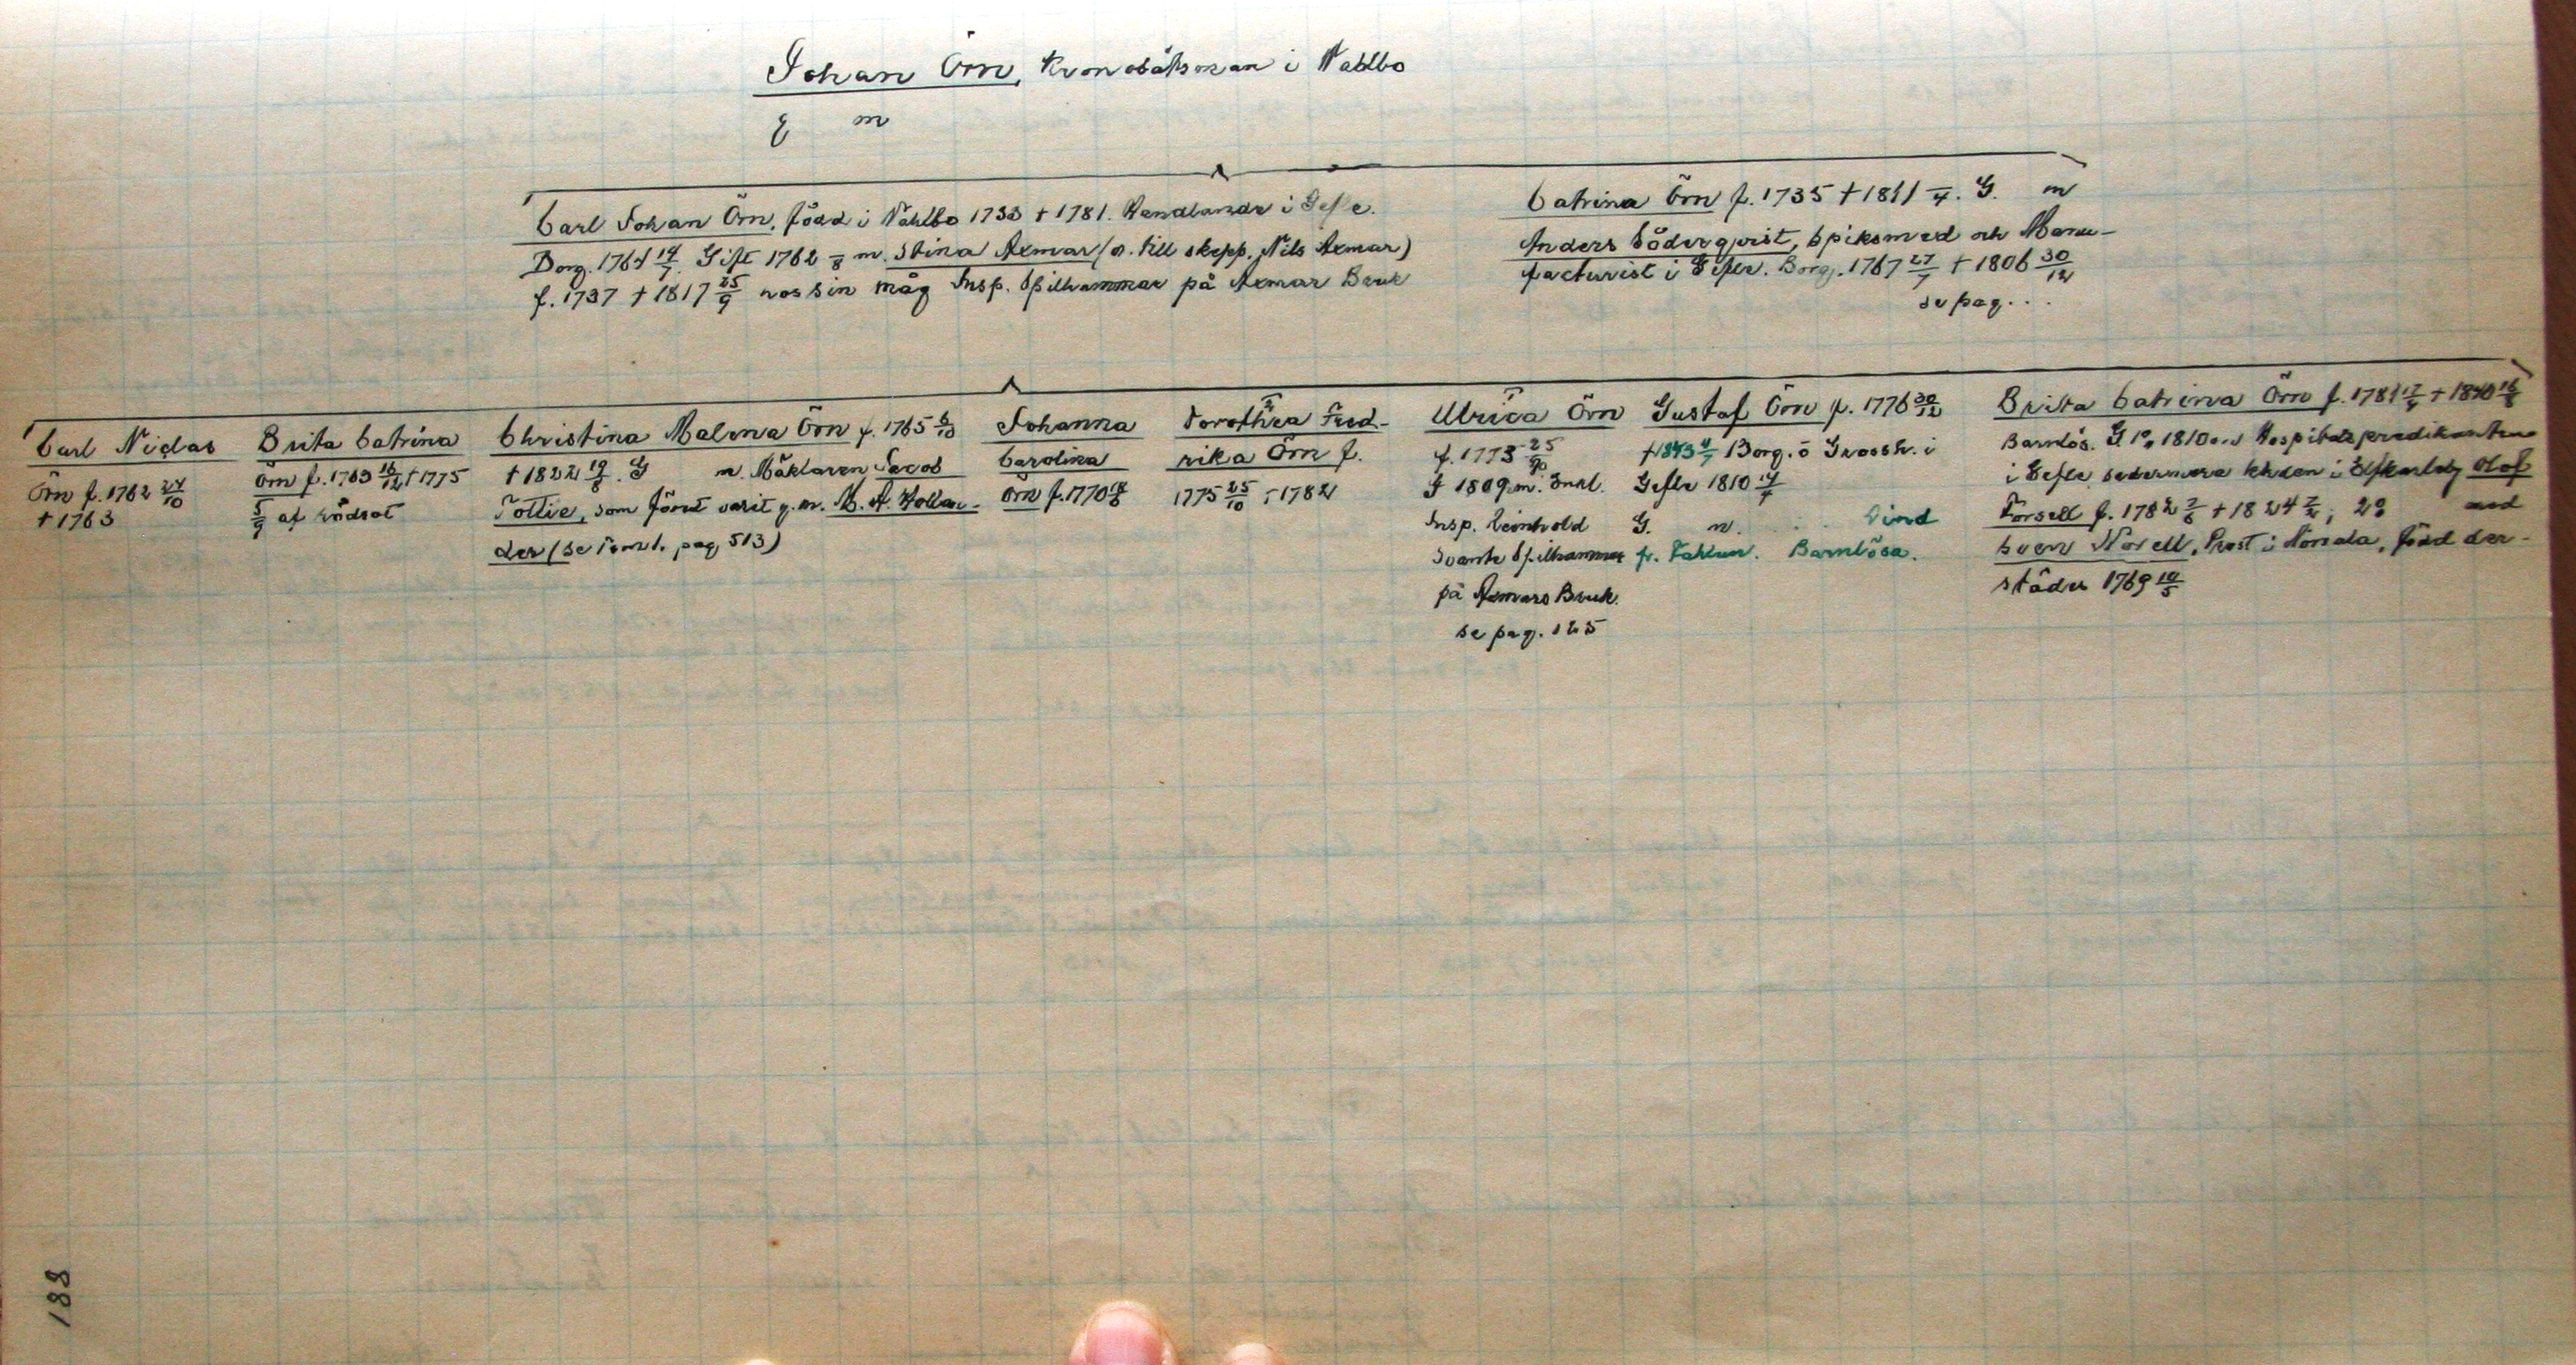 Johan Örn, Kronobåtsman i Wahlbo
G m
Carl Johan Örn, född i Wahlbo 1733 † 1781. Handlande i Gefle.
Borg. 1764 14/7. Gift 1762 –/8 m. Stina Axmar (d. till skepp. Nils Axmar)
f. 1737 † 1817 25/9 hos sin måg Insp. Spilhammar på Axmar Bruk
Catrina Örn f. 1735 † 1811 –/4. G. m
Anders Söderqvist, Spiksmed och Manu-
facturist i Gefle. Borg. 1767 27/7 † 1806 30/12
se pag. . .
Carl Niclas
Örn f. 1762 24/10
† 1763
Brita Catrina
Örn f. 1763 16/12 † 1775
5/9 af rödsot
Christina Malena Örn f. 1765 6/10
† 1822 19/8. G m. Mäklaren Jacob
Tottie, som förut varit g. m. M. A. Hollan-
der (se Tom 1. pag 513)
Johanna
Carolina
Örn f. 1770 18/8
Dorothea Fred-
rika Örn f.
1775 25/10 † 1782
Ulrica Örn
f. 1773 25/10
G 1809 m. Enkl.
Insp. Reinhold
Svante Spilhammar
på Axmars Bruk.
se pag. 125
Gustaf Örn f. 1776 30/12
† 1843 4/7 Borg. o Grossh. i
Gefle 1810 14/7
G. m. . . Lind
fr. Fahlun. Barnlösa.
Brita Catrina Örn f. 1781 17/4 † 1840 16/8
Barnlös. G 1º 1810 Hospitalspredikanten
i Gefle sedermera khden i Elfkarleby Olof
Forsell f. 1782 2/6 † 1824 2/2; 2º med
Sven Norell, Prost i Norrala, född der-
städes 1769 19/5
188